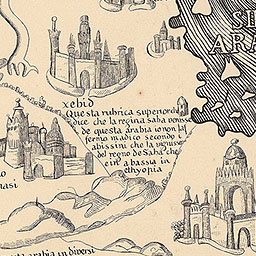 SI
ARA
xebid
Questa rubrica superiord
dice che la regina saba venisse
de questa arabia io non lo
fermo ma dico secondo i
abissini che la venisse
del regno de Saba che
e in abassia in
ethyopia
o
nasi
sta arabia in diversi